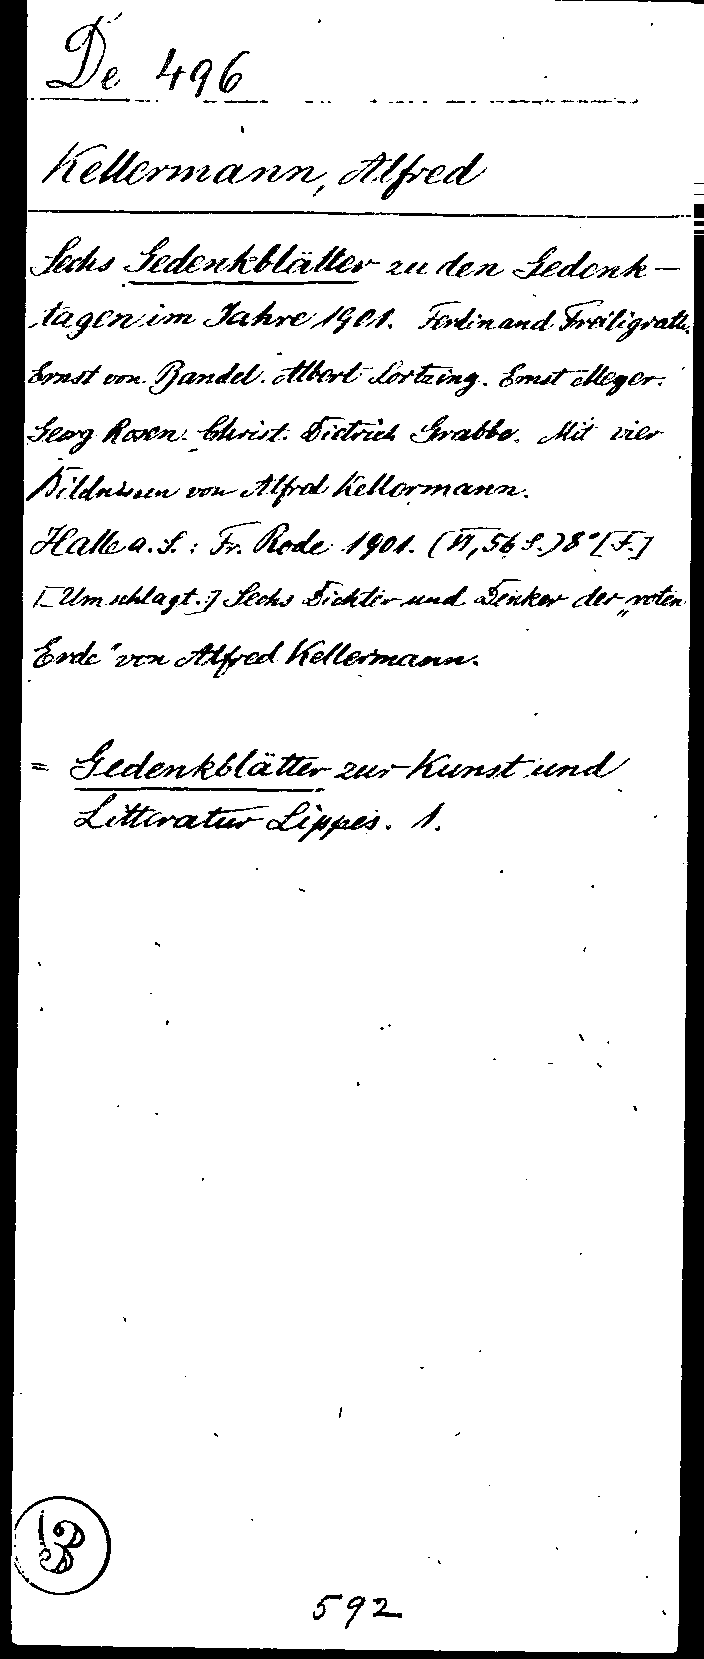 De 496
Kellermann, Alfred
Sechs Gedenkblätter zu den Gedenk-
tagen im Jahre 1901. Ferdinand Freiligrath.
Ernst von Bandel. Albert Lortzing. Ernst Meyer.
Georg Rosen. Christ. Dietrich Grabbe. Mit vier
Bildnissen von Alfred Kellermann.
Halle a. S.: Fr. Rode 1901. (VI, 56 S.) 8° [F.]
[Umschlagt.:] Sechs Dichter und Denker der „roten
Erde" von Alfred Kellermann.
= Gedenkblätter zur Kunst und
Litteratur Lippes. 1.
592